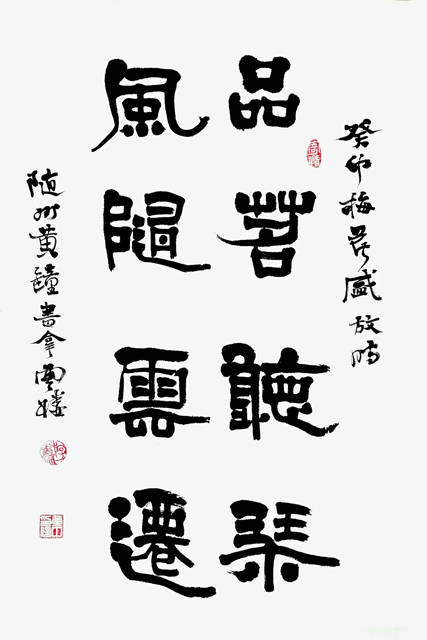 癸卯梅花盛放時
品茗聽琹
風隨雲遷
随州黄鐘書